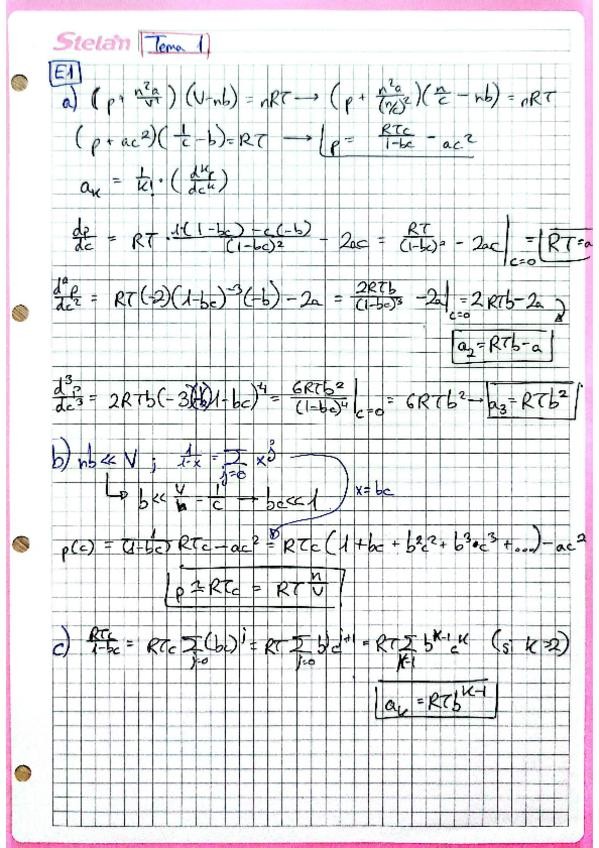 Stelan Tema 1
E1
a) (p + n²a/V²)(V-nb) = nRT → (p + n²a/(n/c)²)(n/c - nb) = nRT
(p+ac²)(1/c - b) = RT → p = RTc/(1-bc) - ac²
aₖ = 1/k! · (dᵏp/dcᵏ)
dp/dc = RT · (1·(1-bc) - c(-b))/(1-bc)² - 2ac = RT/(1-bc)² - 2ac |c=0 = RT = a
d²p/dc² = RT(-2)(1-bc)⁻³(-b) - 2a = 2RTb/(1-bc)³ - 2a |c=0 = 2RTb - 2a
a₂ = RTb - a
d³p/dc³ = 2RTb(-3)(-b)(1-bc)⁻⁴ = 6RTb²/(1-bc)⁴ |c=0 = 6RTb² → a₃ = RTb²
b) nb << V ; 1/(1-x) = Σ j=0 xʲ
b << V/n = 1/c → bc << 1 x = bc
p(c) = 1/(1-bc) RTc - ac² = RTc(1 + bc + b²c² + b³·c³ + ...) - ac²
p ≃ RTc = RT n/V
c) RTc/(1-bc) = RTc Σ j=0 (bc)ʲ = RT Σ j=0 bʲcʲ⁺¹ = RT Σ k=1 bᵏ⁻¹cᵏ (si k>2)
aₖ = RTbᵏ⁻¹